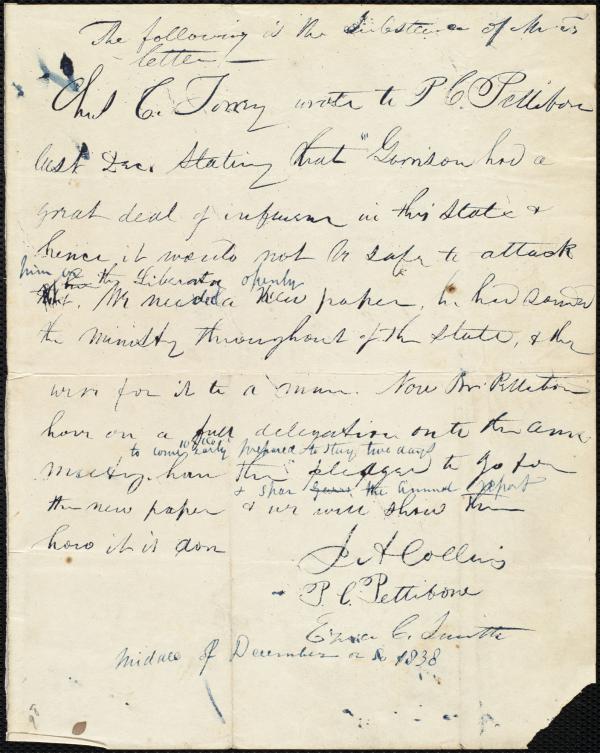 The following is the Substance of Mr T's
letter,—
Chas C. Torrey wrote to P C. Pettibone
last Dec. Stating that "Garrison had a
great deal of influence in this State &
hence it would not be safe to attack
him or the Liberator openly
We needed a New paper, he had sounded
the ministry throughout the State, & they
were for it to a man. Now Br. Pettibone
have on a full delegation onto the ann
to come early prepared to stay two days
meeting. have them pledged to go for
& spar the annual report
the new paper & we will show them
how it is don
J. A Collins
P. C. Pettibone
Ezra C. Smith
Middle of December or so 1838